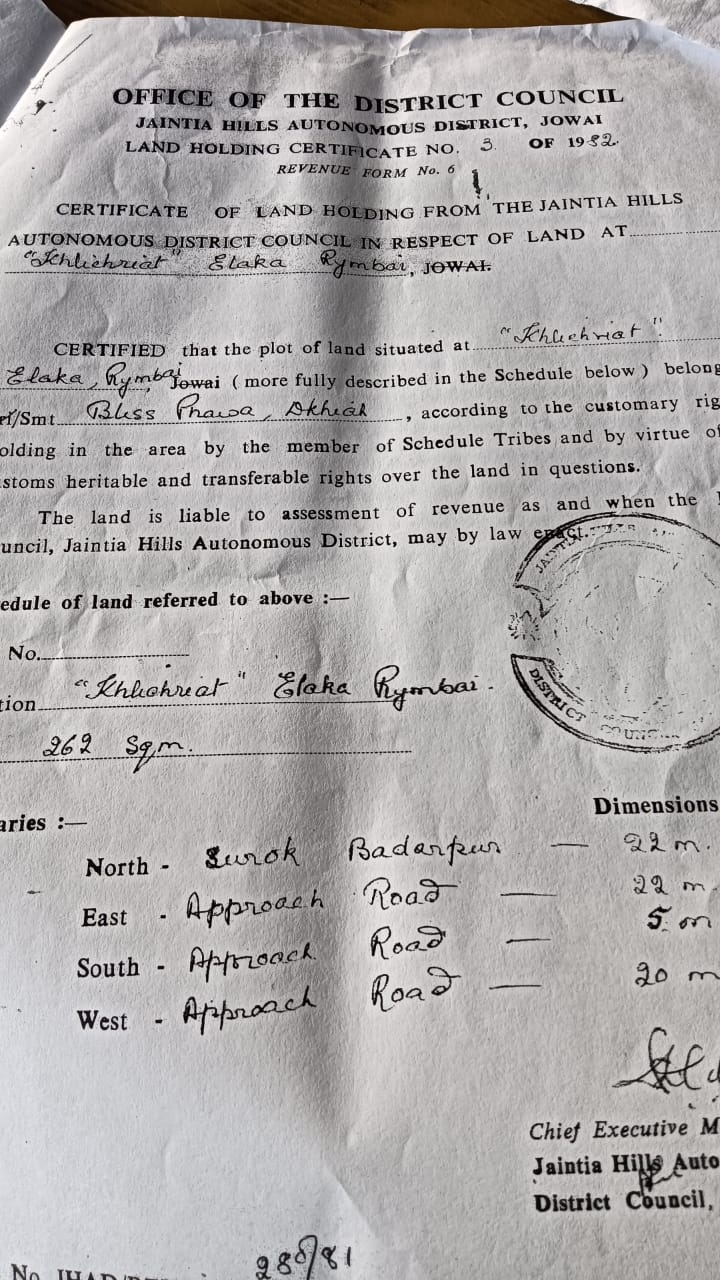 OFFICE OF THE DISTRICT COUNCIL
JAINTIA HILLS AUTONOMOUS DISTRICT, JOWAI
LAND HOLDING CERTIFICATE NO. 3 OF 1982.
REVENUE FORM No. 6
CERTIFICATE OF LAND HOLDING FROM THE JAINTIA HILLS
AUTONOMOUS DISTRICT COUNCIL IN RESPECT OF LAND AT
"Khliehriat" Elaka Rymbai, JOWAI.
CERTIFIED that the plot of land situated at "Khliehriat".
Elaka, Rymbai Jowai ( more fully described in the Schedule below ) belong
/Smt Bliss Phawa, , according to the customary rig
olding in the area by the member of Schedule Tribes and by virtue of
stoms heritable and transferable rights over the land in questions.
The land is liable to assessment of revenue as and when the
uncil, Jaintia Hills Autonomous District, may by law enact.
edule of land referred to above :—
No.
tion "Khliehriat" Elaka Rymbai.
262 Sqm.
aries :— Dimensions
North - Surok Badarpur — 22 m.
East - Approach Road — 22 m.
South - Approach Road — 5 m
West - Approach Road — 20 m
JAINTIA
DISTRICT COUNCIL
Chief Executive M
Jaintia Hills Auto
District Council,
No. JHAD 280/81